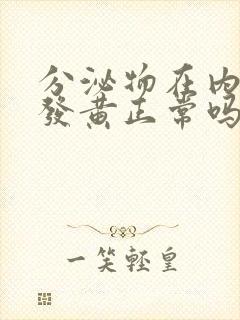 分泌物在内
發黄正常吗
一笑輕皇